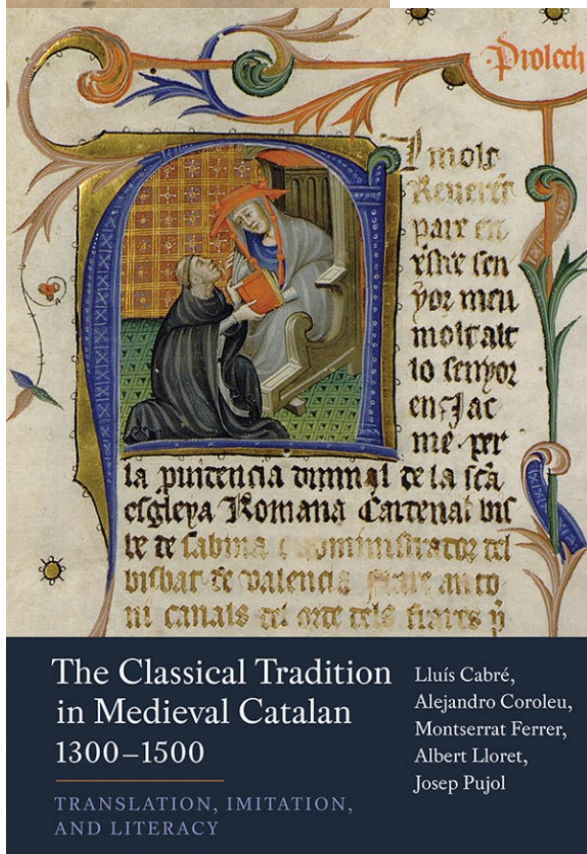 Prolech
Al molt
Reueret
pare en
xpist e sen
yor meu
molt alt
lo senyor
en Jac
me. per
la prouidencia diuinal de la sca
esgleya Romana Cardenal bis
be de sabina e administrador del
bisbat de valencia frare anto
ni canals del orde dels frares p
The Classical Tradition
in Medieval Catalan
1300–1500
TRANSLATION, IMITATION,
AND LITERACY
Lluís Cabré,
Alejandro Coroleu,
Montserrat Ferrer,
Albert Lloret,
Josep Pujol